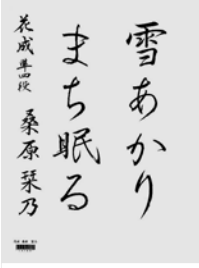 雪あかり
まち眠る
花成 準四段 桑原 栞乃